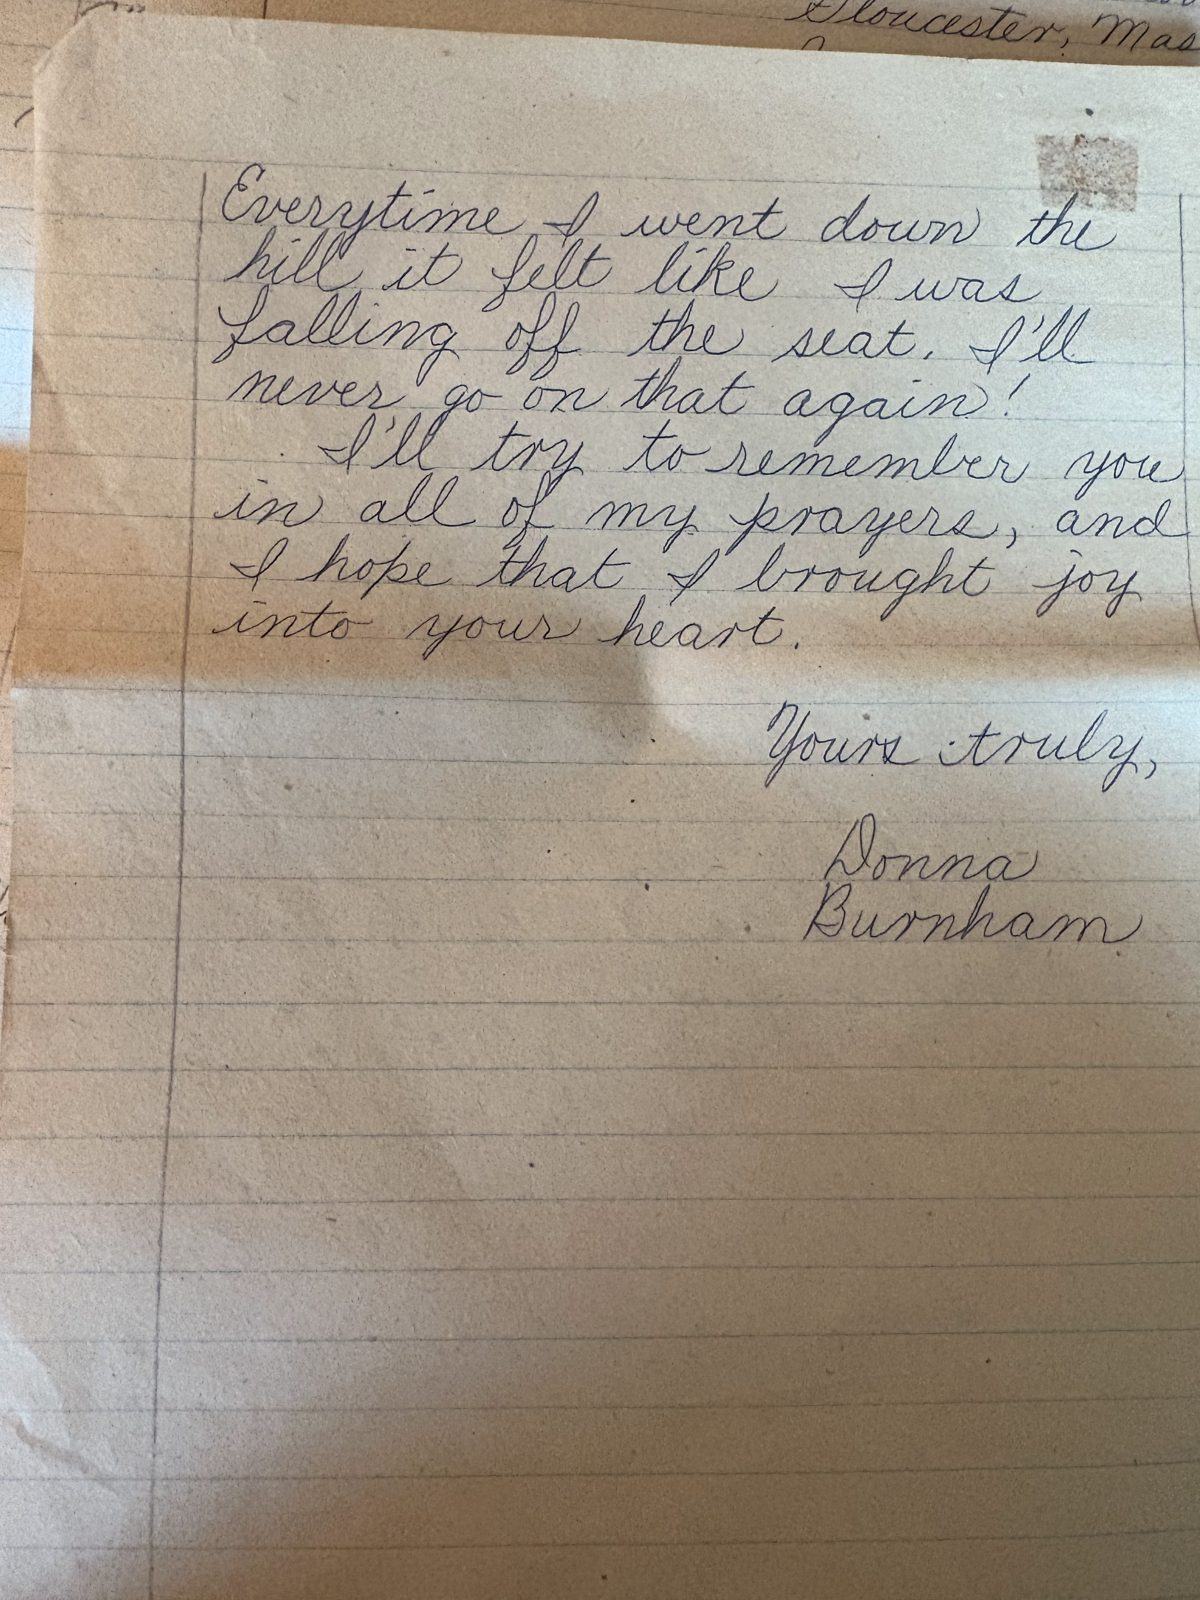 Gloucester, Mas
Everytime I went down the
hill it felt like I was
falling off the seat. I'll
never go on that again!
I'll try to remember you
in all of my prayers, and
I hope that I brought joy
into your heart.
Yours truly,
Donna
Burnham